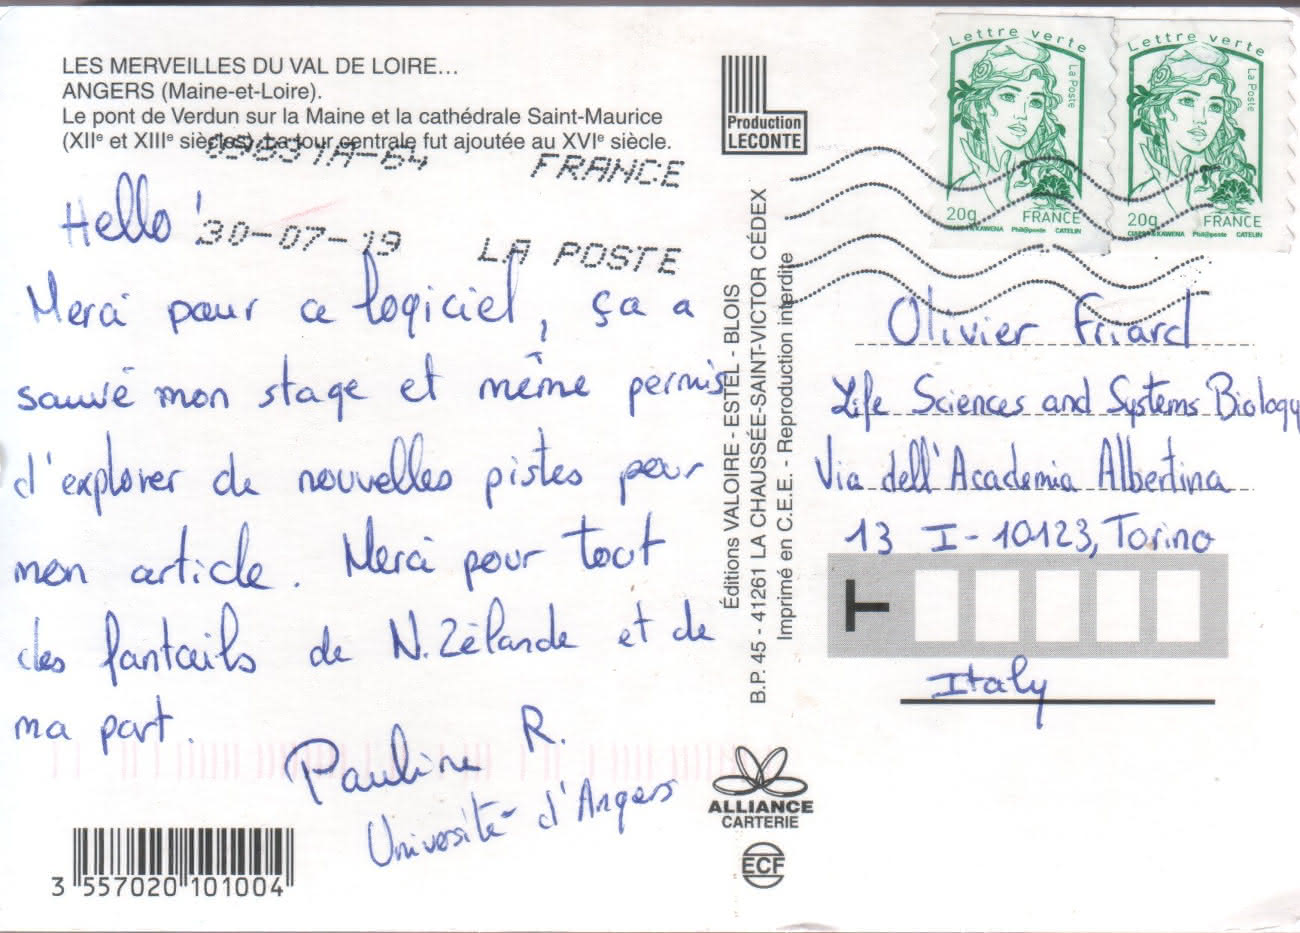 LES MERVEILLES DU VAL DE LOIRE...
ANGERS (Maine-et-Loire).
Le pont de Verdun sur la Maine et la cathédrale Saint-Maurice
(XIIe et XIIIe siècles). La tour centrale fut ajoutée au XVIe siècle.
FRANCE
30-07-19 LA POSTE
Hello !
Merci pour ce logiciel, ça a
sauvé mon stage et même permis
d'explorer de nouvelles pistes pour
mon article. Merci pour tout
des fantails de N.Zélande et de
ma part.
Pauline R.
Université d'Angers
3 557020 101004
Production
LECONTE
Éditions VALOIRE - ESTEL - BLOIS
B.P. 45 - 41261 LA CHAUSSÉE-SAINT-VICTOR CÉDEX
Imprimé en C.E.E. - Reproduction interdite
ALLIANCE
CARTERIE
ECF
Lettre verte
La Poste
20g
FRANCE
Phil@poste CATELIN
Lettre verte
La Poste
20g
FRANCE
Phil@poste CATELIN
Olivier Friard
Life Sciences and Systems Biology
Via dell'Academia Albertina
13 I-10123, Torino
T
Italy